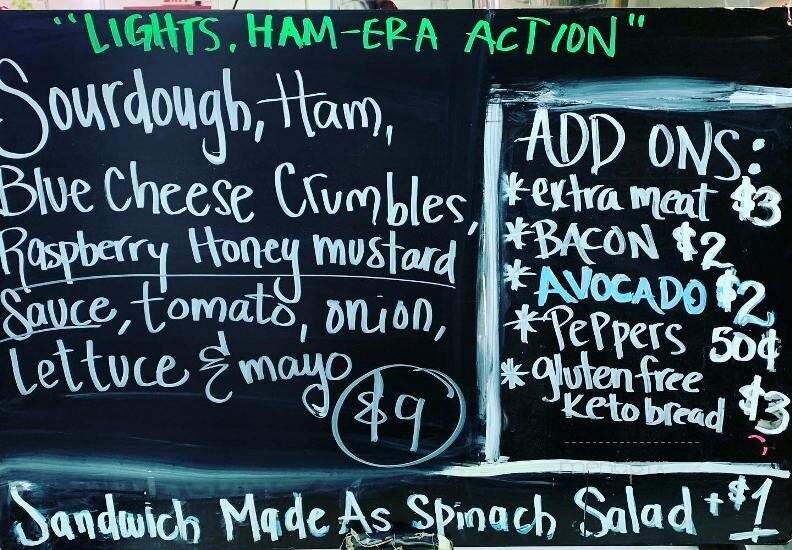 "LIGHTS, HAM-ERA ACTION"
Sourdough, Ham,
Blue Cheese Crumbles,
Raspberry Honey mustard
Sauce, tomato, onion,
Lettuce & mayo
$9
ADD ONS:
*extra meat $3
*BACON $2
*AVOCADO $2
*PePPers 50¢
*gluten free
Keto bread $3
Sandwich Made As Spinach Salad +$1